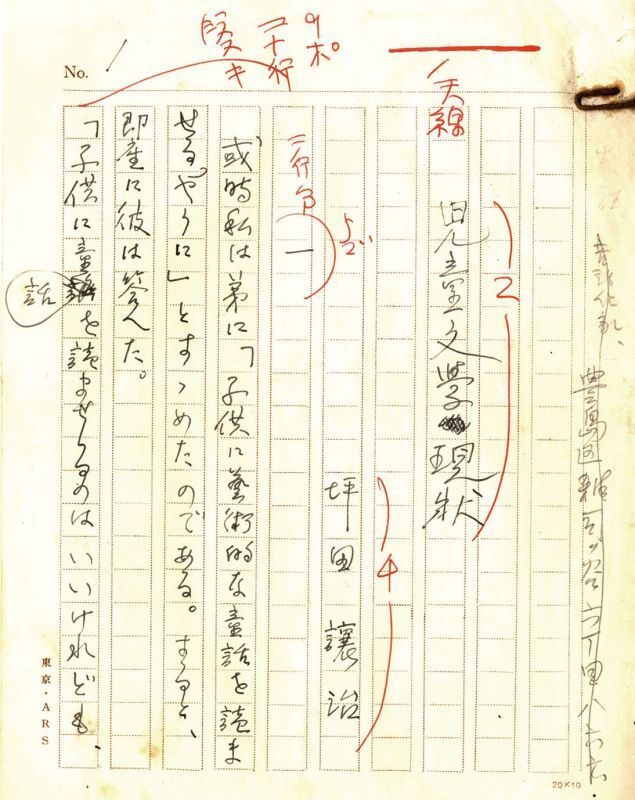 No. 1
9ポ
二十行
天線
豊島区雑司ヶ谷六丁目八
児童文学現状
2
坪田譲治
4
二行
一
或時私は弟に「子供に藝術的な童話を読ま
せるやうに」とすゝめたのである。すると、
即座に彼は答へた。
「子供に童話を読ませるのはいいけれども、
話
東京・ARS
20×10